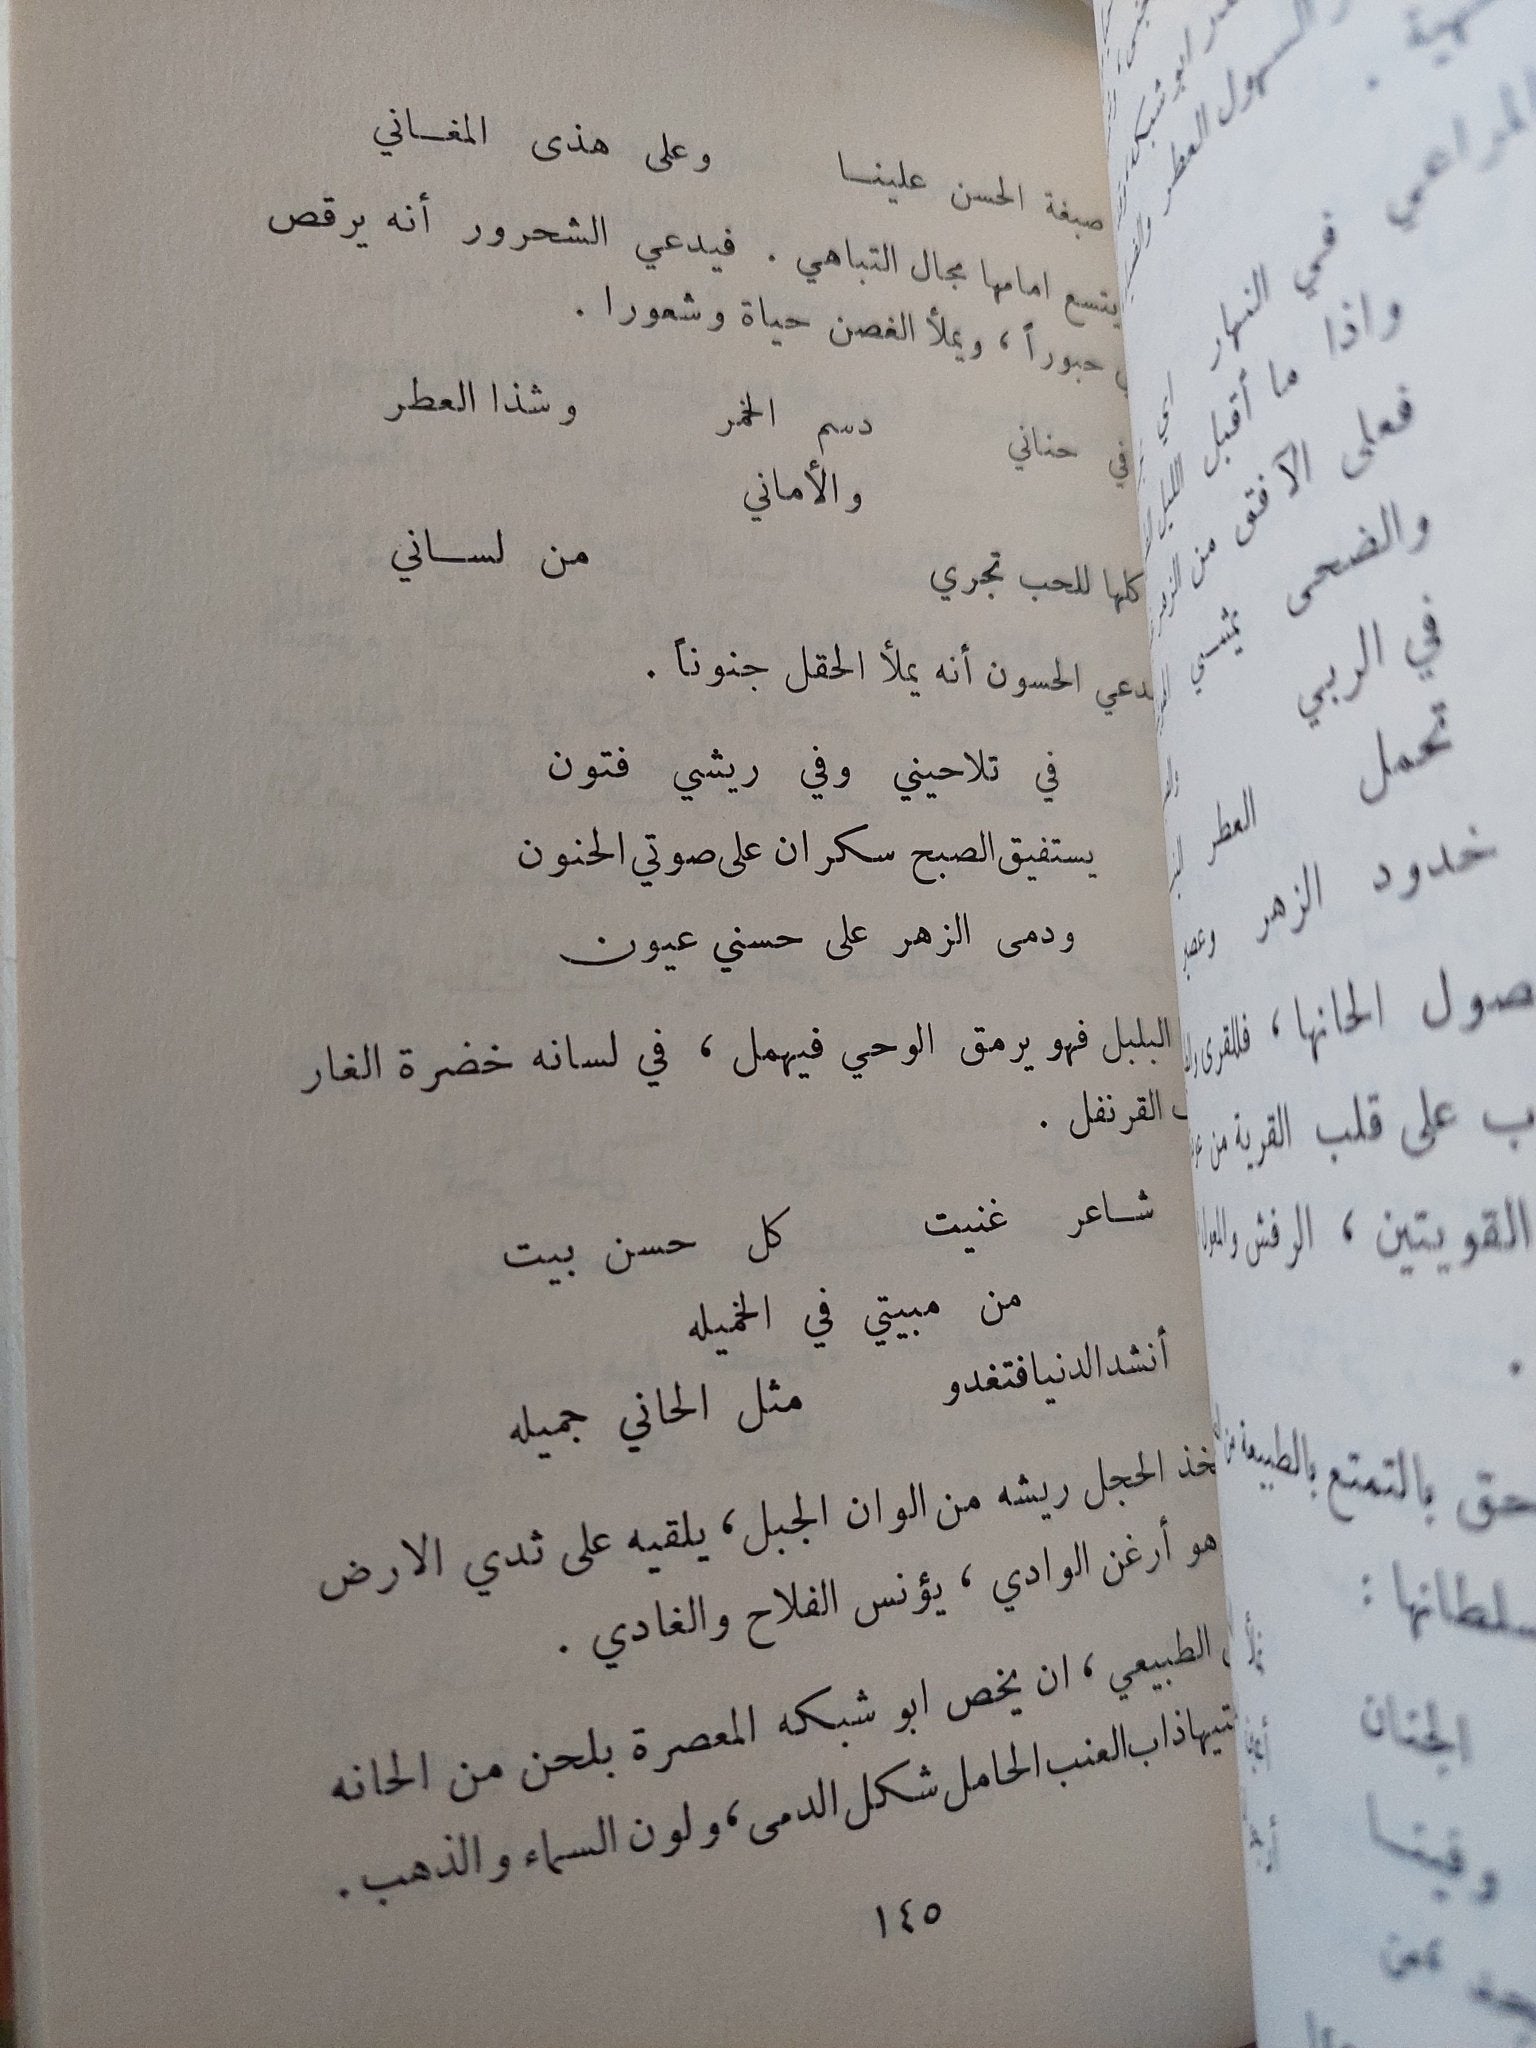 صبغة الحسن علينـــا وعلى هذى المغـــاني
يتسع امامها مجال التباهي . فيدعي الشحرور أنه يرقص
حبوراً ، ويملأ الغصن حياة وشعورا .
في حناني دسم الخمر وشذا العطر
والأماني
كلها للحب تجري من لســـاني
الحسون أنه يملأ الحقل جنوناً .
في تلاحيني وفي ريشي فتون
يستفيق الصبح سكران على صوتي الحنون
ودمى الزهر على حسني عيون
البلبل فهو يرمق الوحي فيهمل ، في لسانه خضرة الغار
القرنفل .
شـــاعر غنيت كل حسن بيت
من مبيتي في الخميله
أنشد الدنيا فتغدو مثل الحاني جميله
الحجل ريشه من الوان الجبل ، يلقيه على ثدي الارض
هو أرغن الوادي ، يؤنس الفلاح والغادي .
الطبيعي ، ان يخص ابو شبكه المعصرة بلحن من الحانه
ذاب العنب الحامل شكل الدمى ، ولون السماء والذهب .
١٤٥
المراعي
في النهار
واذا ما أقبل الليل
فعلى الافق من
والضحى يمشي
في الربى
تحمل العطر
خدود الزهر
الحانها ، فللقرى
على قلب القرية من
القويتين ، الرفش والمعول
.
بالتمتع بالطبيعة من
الجنان
وفينـــا